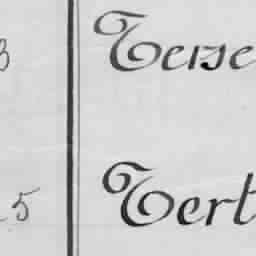 3 Terse
5 Tert